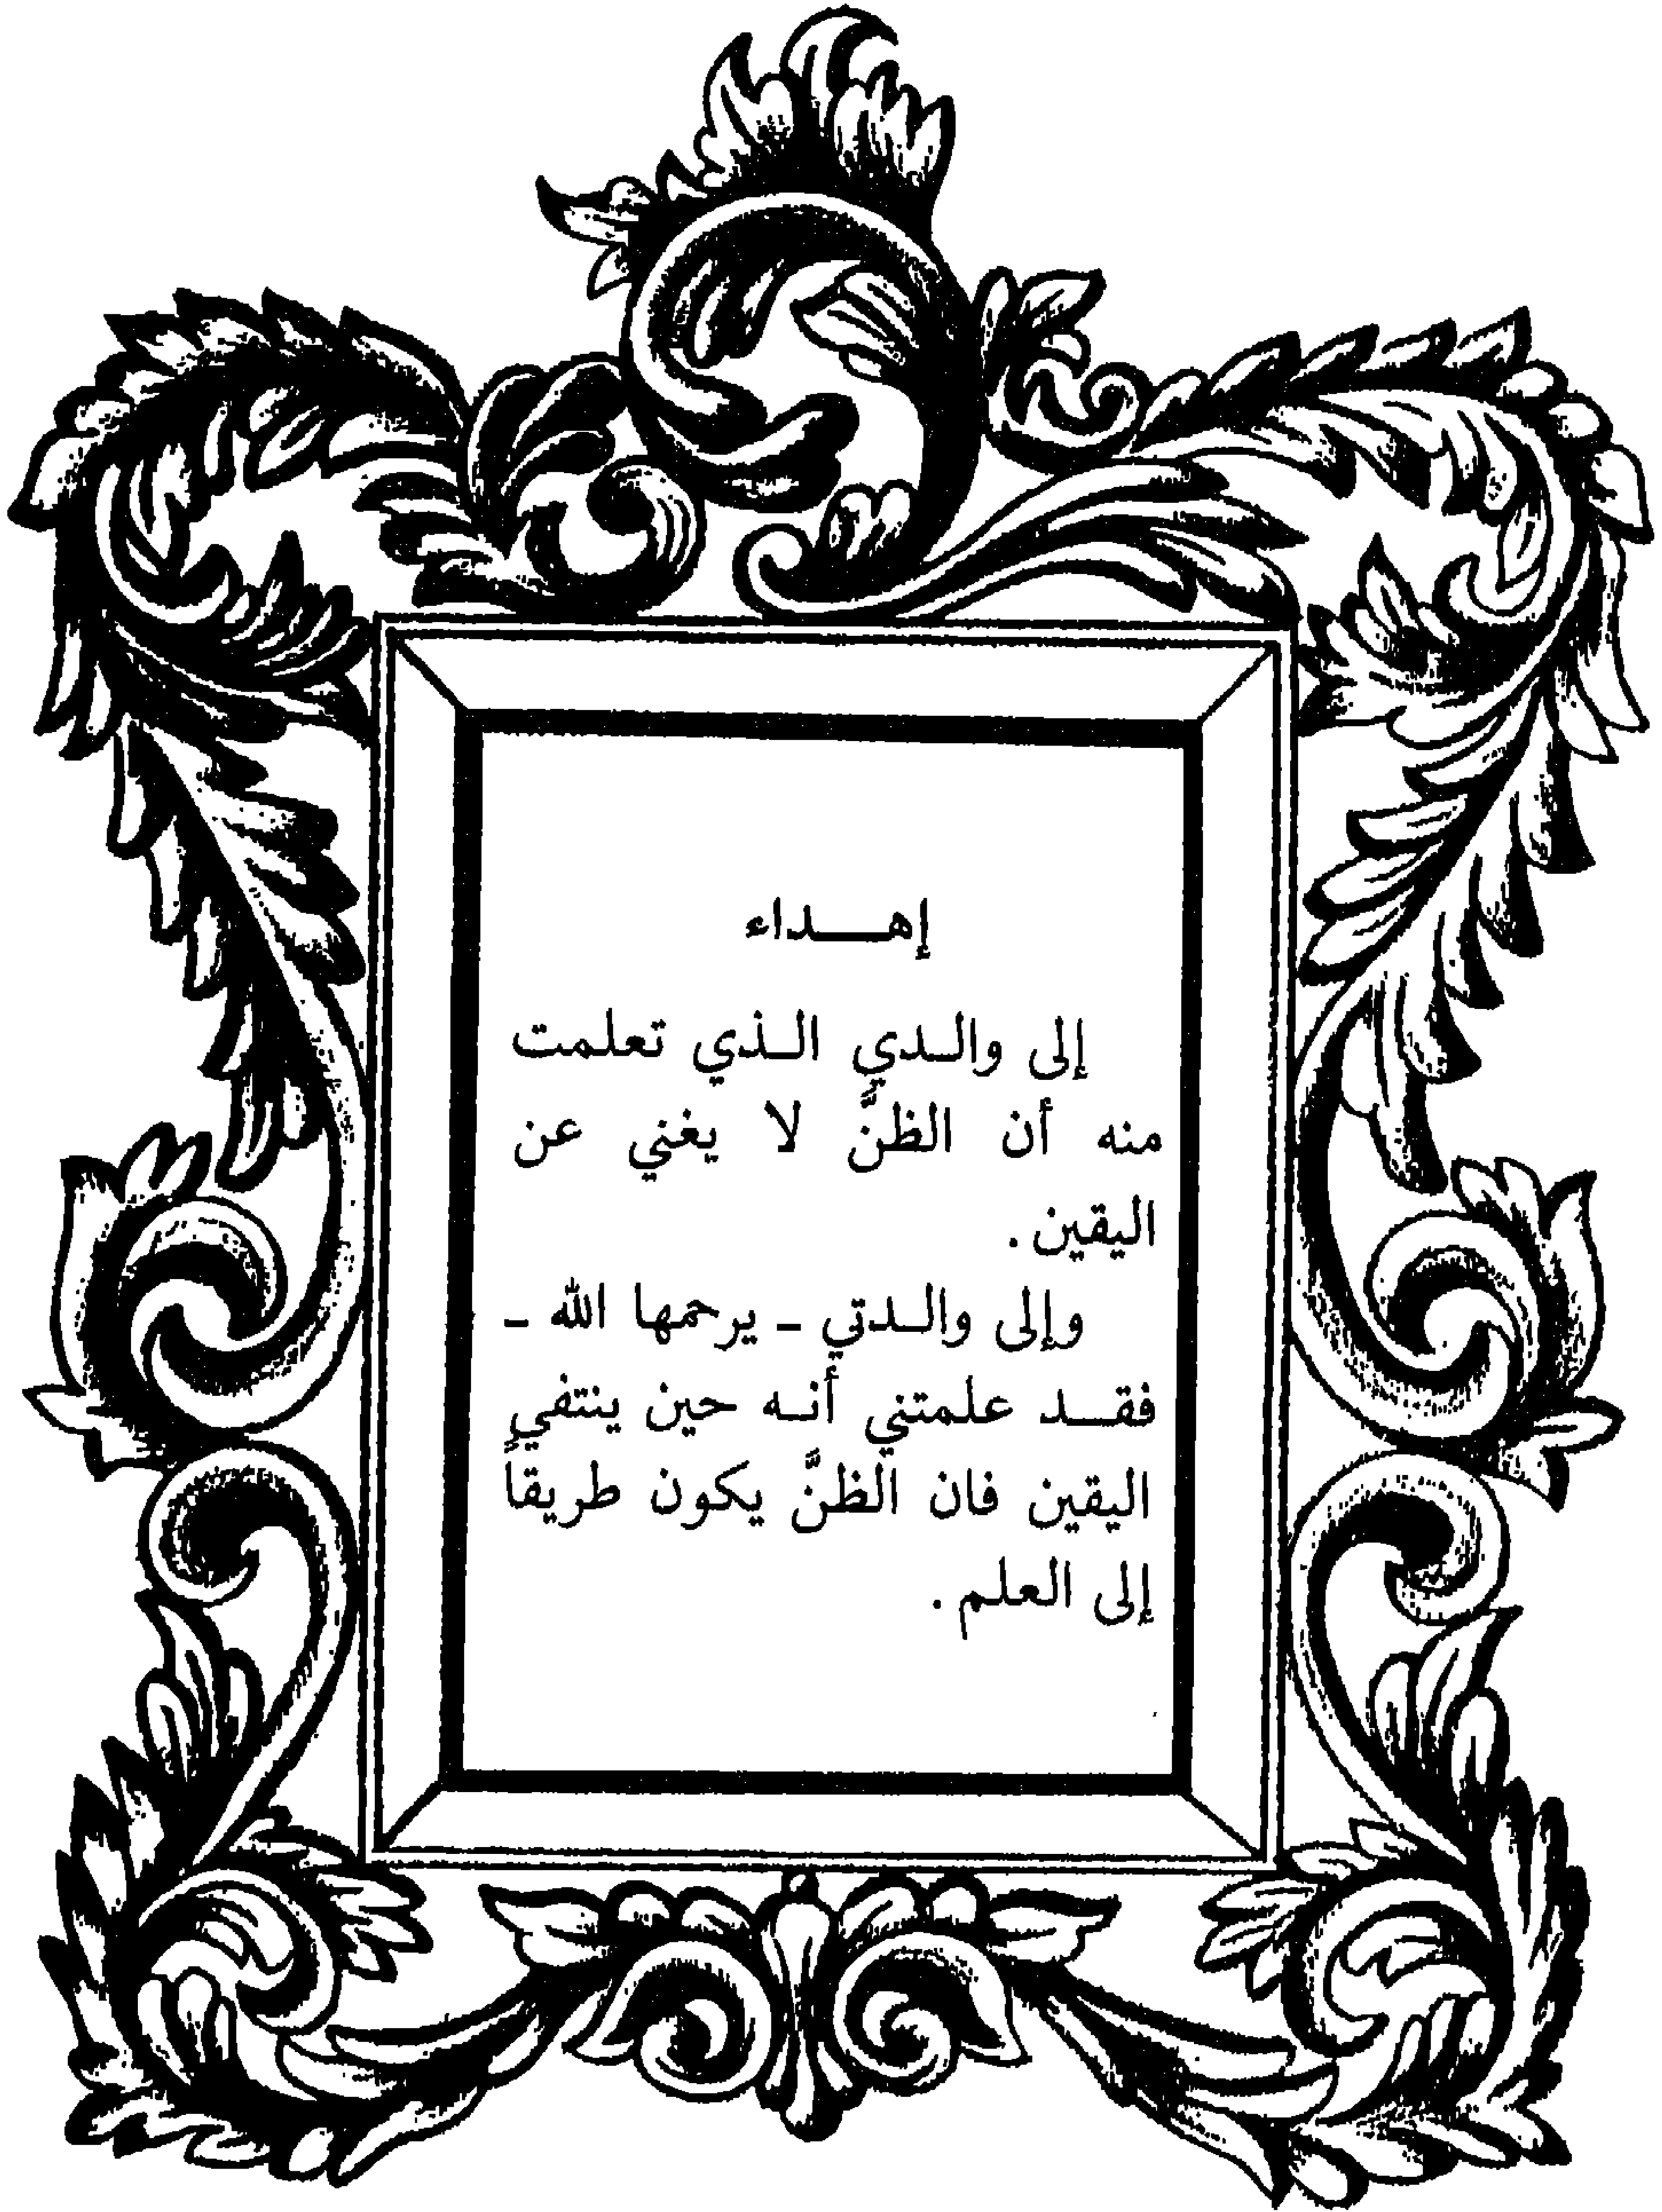 إهداء
إلى والدي الذي تعلمت
منه أن الظنَّ لا يغني عن
اليقين .
وإلى والدتي ـ يرحمها الله ـ
فقد علمتني أنه حين ينتفي
اليقين فان الظنَّ يكون طريقاً
إلى العلم .